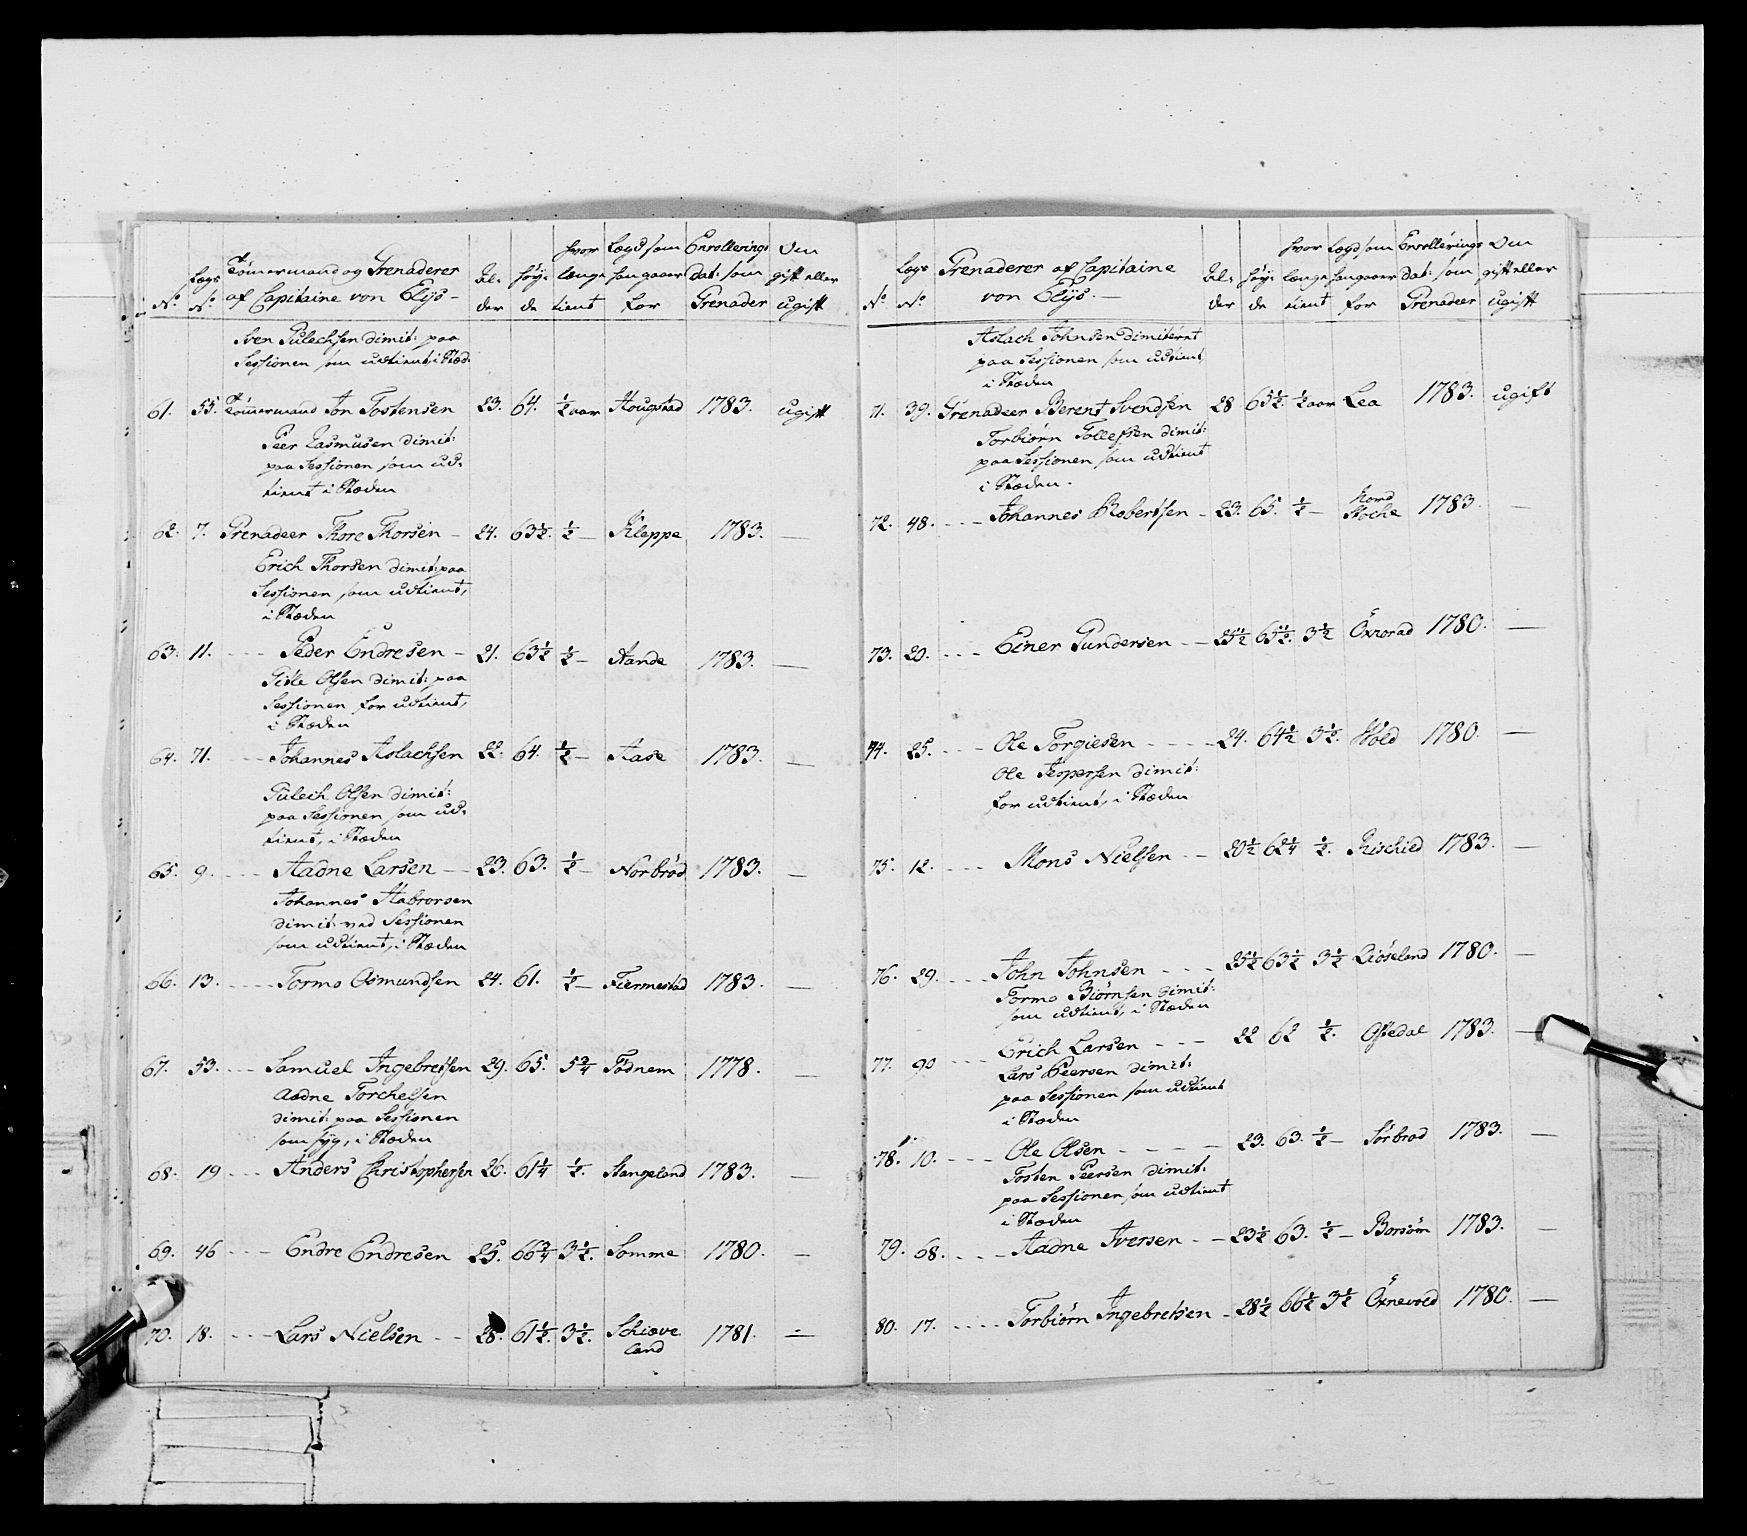 No. Lægs No. Tömermand og Grenaderer af Capitaine von Elÿs Al- der Høy- de hvor længe tient Lægd som han gaaer for Enrollerings Dat: som Grenader Om gift eller ugift
Sven Gulechsen dimit: paa
Sessionen som udtient, i Stæd:
61. 55. Tömermand Jon Tostensen 23. 64. ½ aar Hougstad 1783. ugift
Peer Rasmusen dimit:
paa Sessionen som ud-
tient i Stæden
62. 7. Grenadeer Thore Thorsen – 24. 63½. ½ – Kleppe 1783. –
Erich Thorsen dimit: paa
Sessionen som udtient,
i Stæden
63. 11. Peder Endresen – 21. 63½ ½ – Aande 1783. –
Gitle Olsen dimit: paa
Sessionen for udtient,
i Stæden
64. 71. Johannes Aslachsen 22. 64. ½ – Aase 1783. –
Gulech Olsen dimit:
paa Sessionen som ud-
tient, i Stæden
65. 9. Aadne Larsen 23. 63. ½ – Norbröd 1783. –
Johannes Habrorsen
dimit: ved Sessionen
som udtient, i Stæden
66. 13. Tormo Osmundsen 24. 61. ½ – Fiermestad 1783. –
67. 53. Samuel Ingebretsen 29. 65. 5¾ Födnem 1778. –
Aadne Torchelsen
dimit: paa Sessionen
som syg, i Stæden
68. 19 Anders Christophersen 26. 61¼ ½. Stangeland 1783. –
69. 46 Endre Endresen 25. 66¾ 3½. Somme 1780. –
70. 18. Lars Nielsen 28. 61½. 3½. Schiæve land 1781. –
No. Lægs No. Grenaderer af Capitaine von Elÿs. Al- der Høy- de hvor længe tient Lægd som han gaaer for Enrollerings Dat: som Grenadeer Om gift eller ugift
Aslach Johnsen dimiteret
paa Sessionen som udtient
i Stæden
71. 39. Grenadeer Berent Svendsen 28 65½. ½ aar Lea 1783. ugift
Torbiörn Tollefsen dimit:
paa Sessionen som udtient
i Stæden.
72. 48. Johannes Robertsen – 23. 65. ½ – Nord Stoche 1783. –
73. 20. Einer Gundersen 25½ 65½. 3½ 1780. –
74. 25. Ole Torgiesen 24. 64½ 3½. 1780. –
Ole Jespersen dimit:
for udtient, i Stæden
75. 12. Mons Nielsen 20½ 62¼ ½. 1783. –
76. 29. John Johnsen 25½ 63½ 3½ 1780. –
Tormo Biörnsen dimit:
som udtient, i Stæden
77. 90 Erich Larsen 22 62 ½. Oftedal 1783. –
Lars Peersen dimit:
paa Sessionen som udtient
i Stæden
78. 10. Ole Olsen 23. 63. ½ – Sörbröd 1783. –
Tosten Peersen dimit:
paa Sessionen som udtient
i Stæden
79. 68. Aadne Iversen 23½ 63. ½ – Borsöm 1783. –
80. 17. Torbiörn Ingebretsen – 28½ 66½ 3½ Öxnevold 1780. –